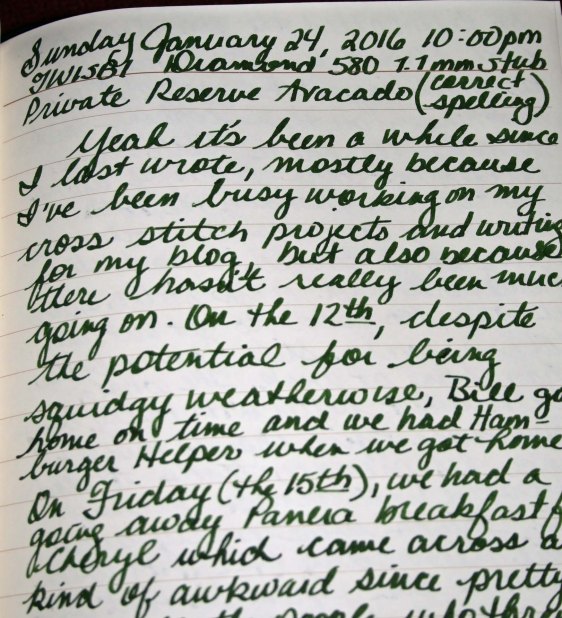 Sunday January 24, 2016 10:00pm
TWISBI Diamond 580 1.1mm stub
Private Reserve Avacado (correct spelling)
Yeah it's been a while since
I last wrote, mostly because
I've been busy working on my
cross stitch projects and writing
for my blog, but also because
there hasn't really been muc
going on. On the 12th, despite
the potential for being
squidgy weatherwise, Bill go
home on time and we had Ham-
burger Helper when we got home
On Friday (the 15th), we had a
going away Panera breakfast f
Cheryl which came across a
kind of awkward since pretty
people who